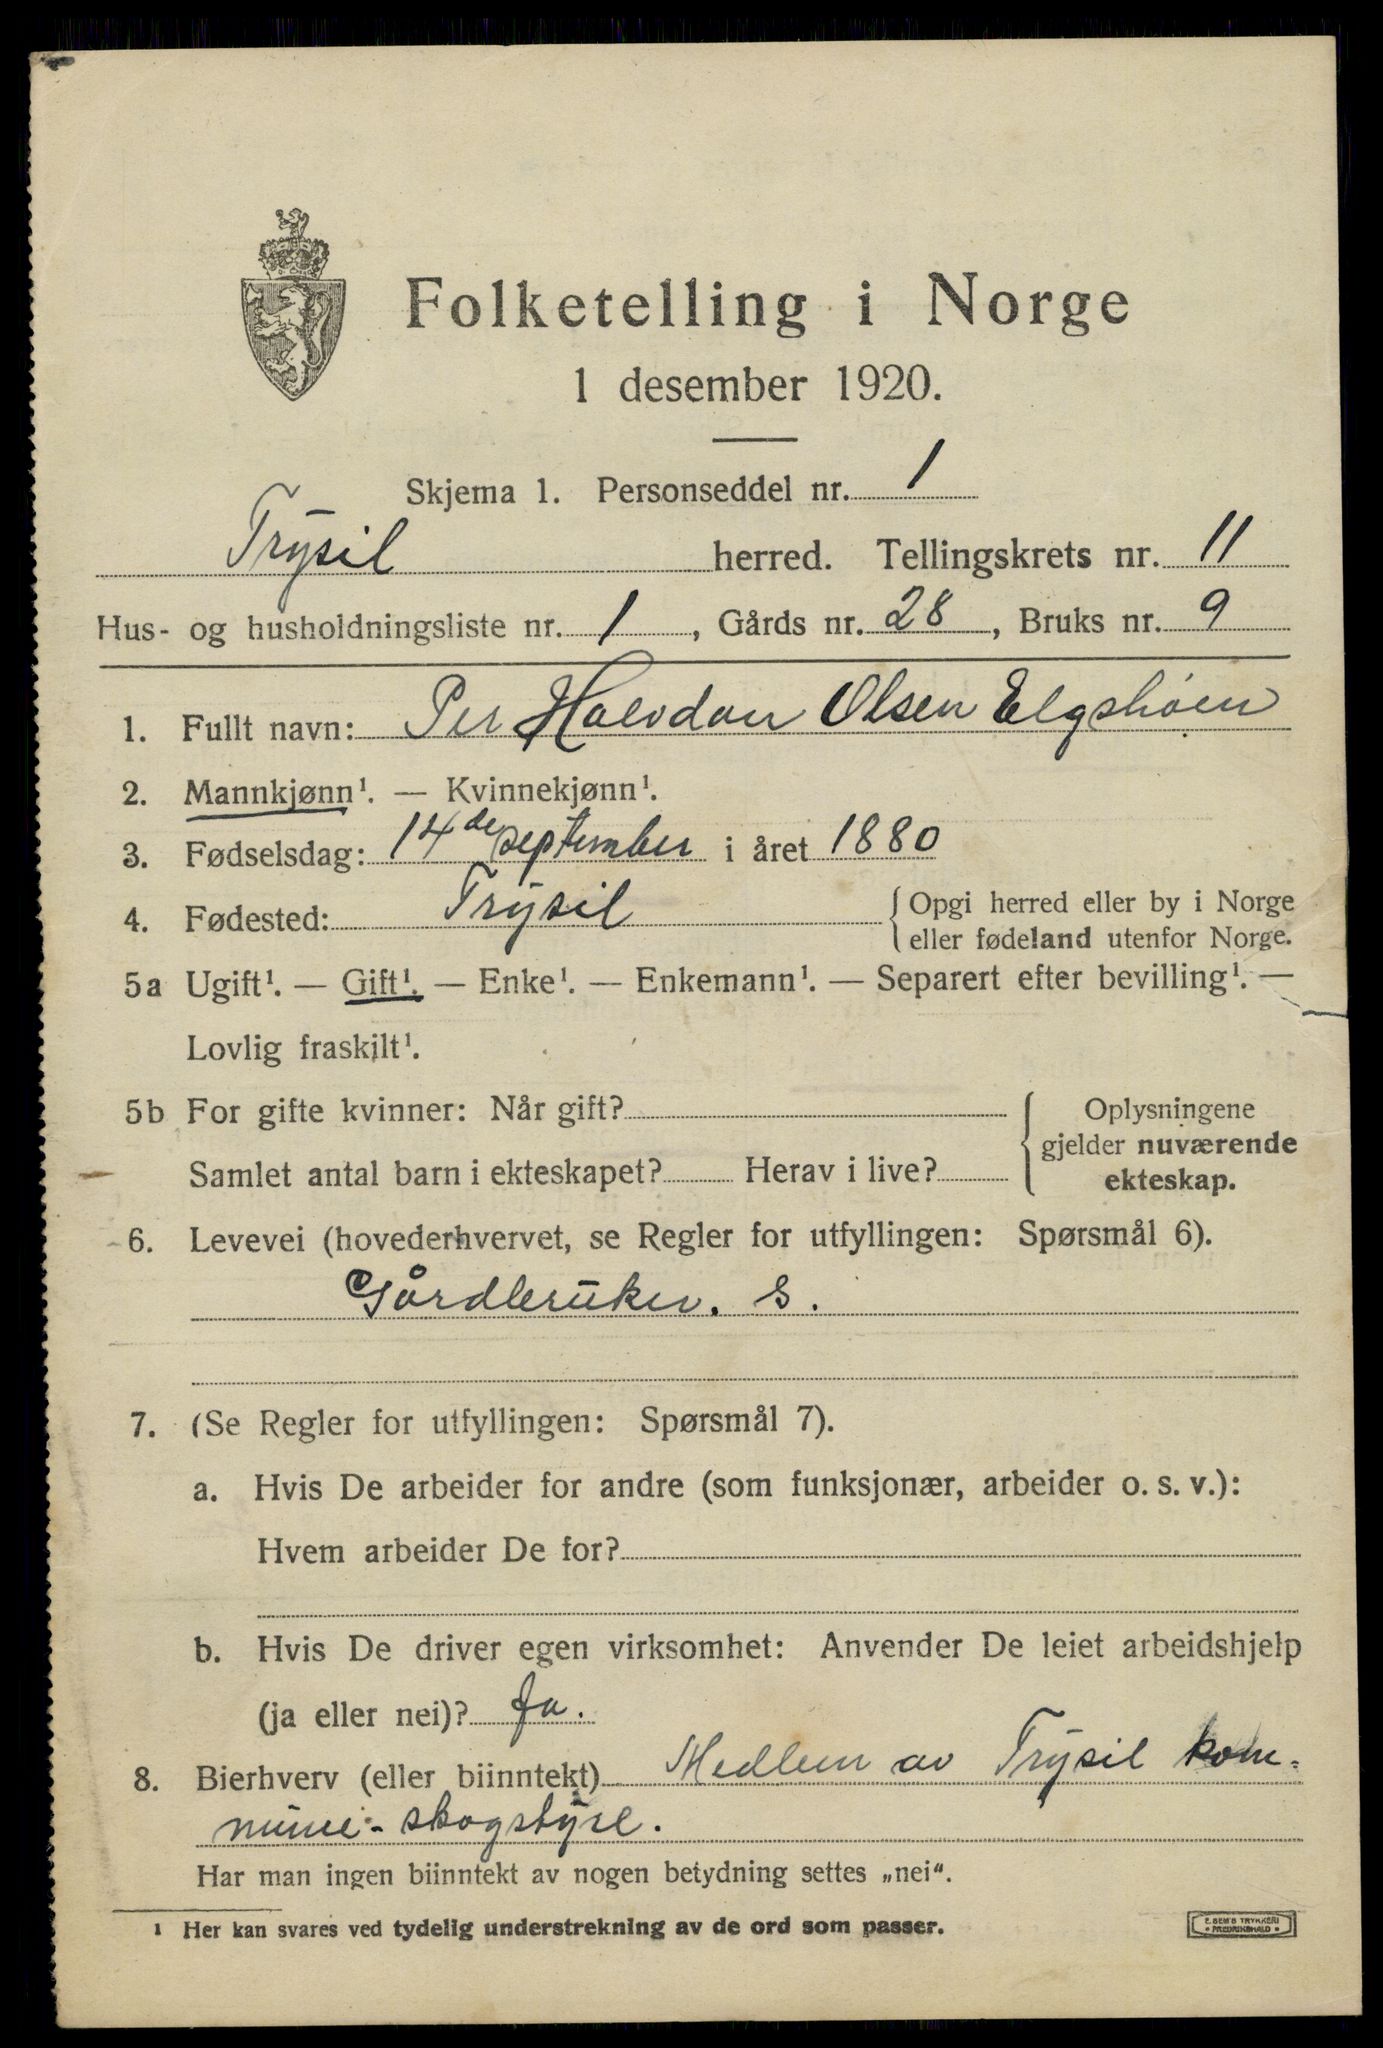 Folketelling i Norge
1 desember 1920.
Skjema 1. Personseddel nr. 1
Trysil herred. Tellingskrets nr. 11
Hus- og husholdningsliste nr. 1, Gårds nr. 28, Bruks nr. 9
1. Fullt navn: Per Halvdan Olsen Elgshøen
2. Mannkjønn¹. — Kvinnekjønn¹.
3. Fødselsdag: 14de september i året 1880
4. Fødested: Trysil { Opgi herred eller by i Norge
eller fødeland utenfor Norge.
5a Ugift¹. — Gift¹. — Enke¹. — Enkemann¹. — Separert efter bevilling¹. —
Lovlig fraskilt¹.
5b For gifte kvinner: Når gift? { Oplysningene
gjelder nuværende
Samlet antal barn i ekteskapet? Herav i live? ekteskap.
6. Levevei (hovederhvervet, se Regler for utfyllingen: Spørsmål 6).
Gårdbruker. S.
7. (Se Regler for utfyllingen: Spørsmål 7).
a. Hvis De arbeider for andre (som funksjonær, arbeider o. s. v.):
Hvem arbeider De for?
b. Hvis De driver egen virksomhet: Anvender De leiet arbeidshjelp
(ja eller nei)? Ja.
8. Bierhverv (eller biinntekt) Medlem av Trysil kom=
mune-skogstyre.
Har man ingen biinntekt av nogen betydning settes „nei“.
1 Her kan svares ved tydelig understrekning av de ord som passer.
E. SEM'S TRYKKERI
• FREDRIKSHALD •